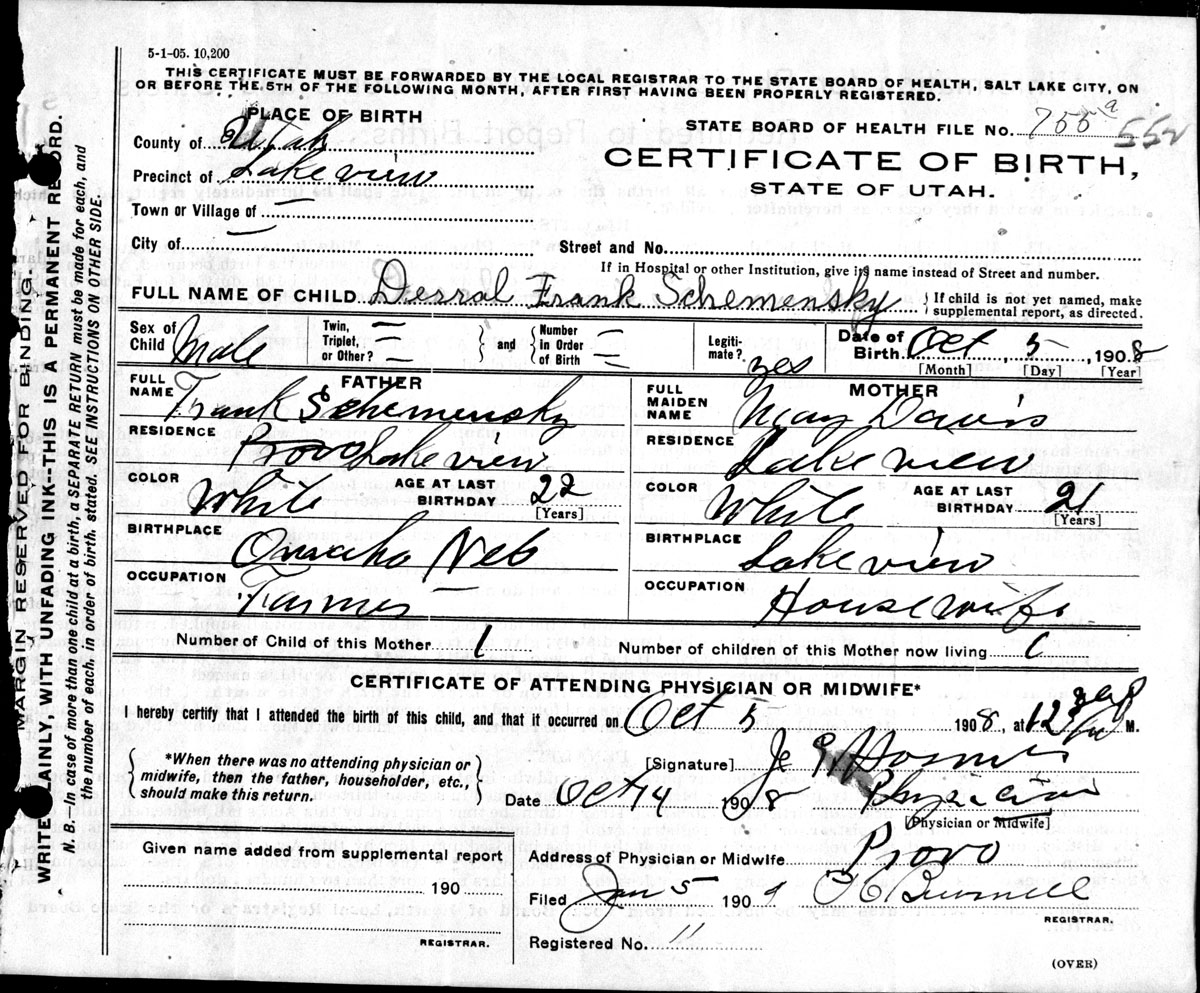 5-1-05. 10,200
THIS CERTIFICATE MUST BE FORWARDED BY THE LOCAL REGISTRAR TO THE STATE BOARD OF HEALTH, SALT LAKE CITY, ON
OR BEFORE THE 5TH OF THE FOLLOWING MONTH, AFTER FIRST HAVING BEEN PROPERLY REGISTERED.
MARGIN RESERVED FOR BINDING.
WRITE PLAINLY, WITH UNFADING INK--THIS IS A PERMANENT RECORD.
N. B. In case of more than one child at a birth, a SEPARATE RETURN must be made for each, and
the number of each, in order of birth, stated. SEE INSTRUCTIONS ON OTHER SIDE.
PLACE OF BIRTH
County of Utah
Precinct of Lake view
Town or Village of —
City of —
STATE BOARD OF HEALTH FILE No. 755 a 552
CERTIFICATE OF BIRTH,
STATE OF UTAH.
Street and No.
If in Hospital or other Institution, give its name instead of Street and number.
FULL NAME OF CHILD Desral Frank Schemensky { If child is not yet named, make
supplemental report, as directed.
Sex of Child Male
Twin, Triplet, or Other? — } and { Number in Order of Birth —
Legitimate? yes
Date of Birth Oct 5, 1908
[Month] [Day] [Year]
FATHER
FULL NAME Frank Schemensky
RESIDENCE Provo Lake view
COLOR White AGE AT LAST BIRTHDAY 22
[Years]
BIRTHPLACE Omaha Neb
OCCUPATION Farmer
MOTHER
FULL MAIDEN NAME May Davis
RESIDENCE Lake view
COLOR White AGE AT LAST BIRTHDAY 21
[Years]
BIRTHPLACE Lake view
OCCUPATION House wife
Number of Child of this Mother 1 Number of children of this Mother now living 1
CERTIFICATE OF ATTENDING PHYSICIAN OR MIDWIFE*
I hereby certify that I attended the birth of this child, and that it occurred on Oct 5 1908, at 12 M.
{ *When there was no attending physician or
midwife, then the father, householder, etc.,
should make this return. }
[Signature]
Date Oct 14 1908 Physician
[Physician or Midwife]
Given name added from supplemental report
190
REGISTRAR.
Address of Physician or Midwife Provo
Filed Jan 5 1909
REGISTRAR.
Registered No. 11
(OVER)